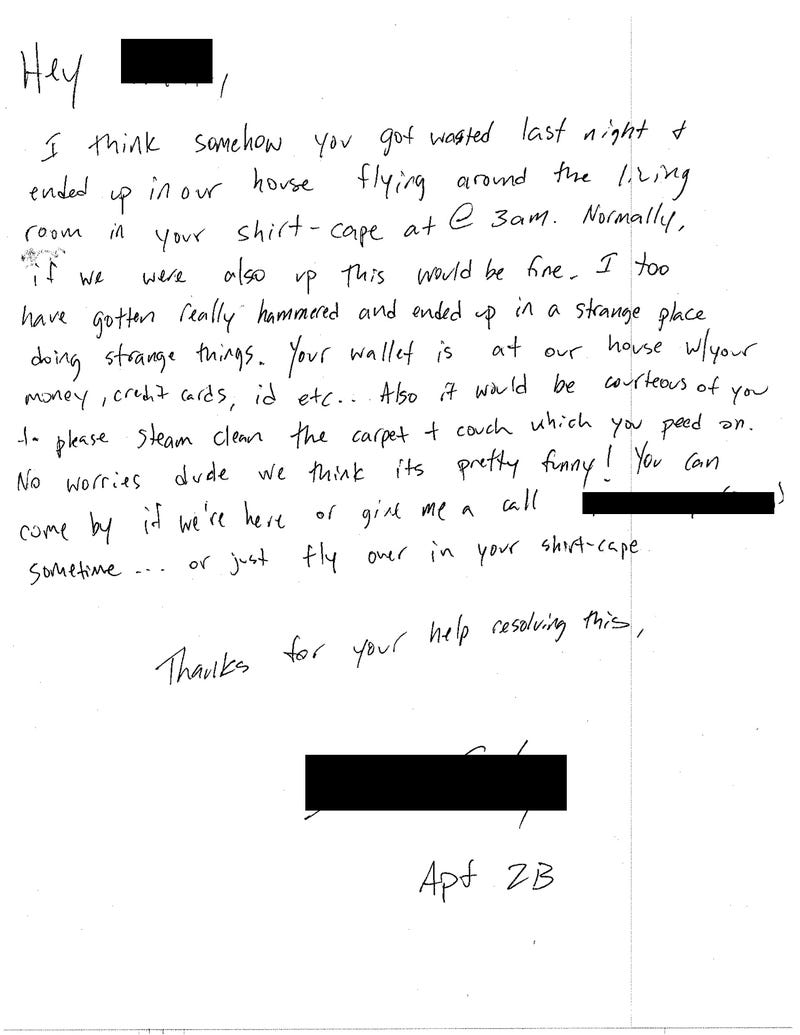 Hey ,
I think somehow you got wasted last night +
ended up in our house flying around the living
room in your shirt-cape at @ 3am. Normally,
if we were also up this would be fine. I too
have gotten really hammered and ended up in a strange place
doing strange things. Your wallet is at our house w/your
money, credit cards, id etc... Also it would be courteous of you
to please steam clean the carpet + couch which you peed on.
No worries dude we think its pretty funny! You can
come by if we're here or give me a call
sometime ... or just fly over in your shirt-cape
Thanks for your help resolving this,
Apt 2B